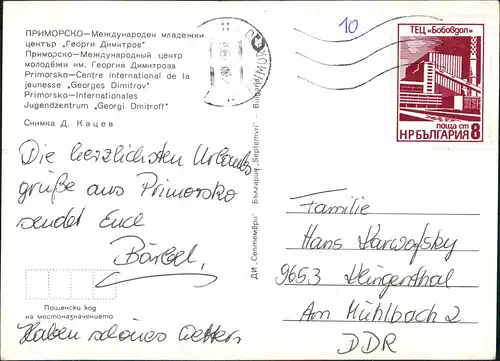 ПРИМОРСКО – Международен младежки
център „Георги Димитров"
Приморско – Международный центр
молодёжи им. Георгия Димитрова
Primorsko – Centre international de la
jeunesse „Georges Dimitrov"
Primorsko – Internationales
Jugendzentrum „Georgi Dimitroff"
Снимка Д. Кацев
10
ТЕЦ „Бобовдол"
поща ст
НРБЪЛГАРИЯ 8
ДИ „Септември" – България „Septemvri" – Bulgaria
Die herzlichsten Urlaubs
grüße aus Primorsko
sendet Euch
Bärbel.
Пощенски код
на местоназначението
Haben schönes Wetter.
Familie
Hans
9653 Klingenthal
Am Mühlbach 2
DDR